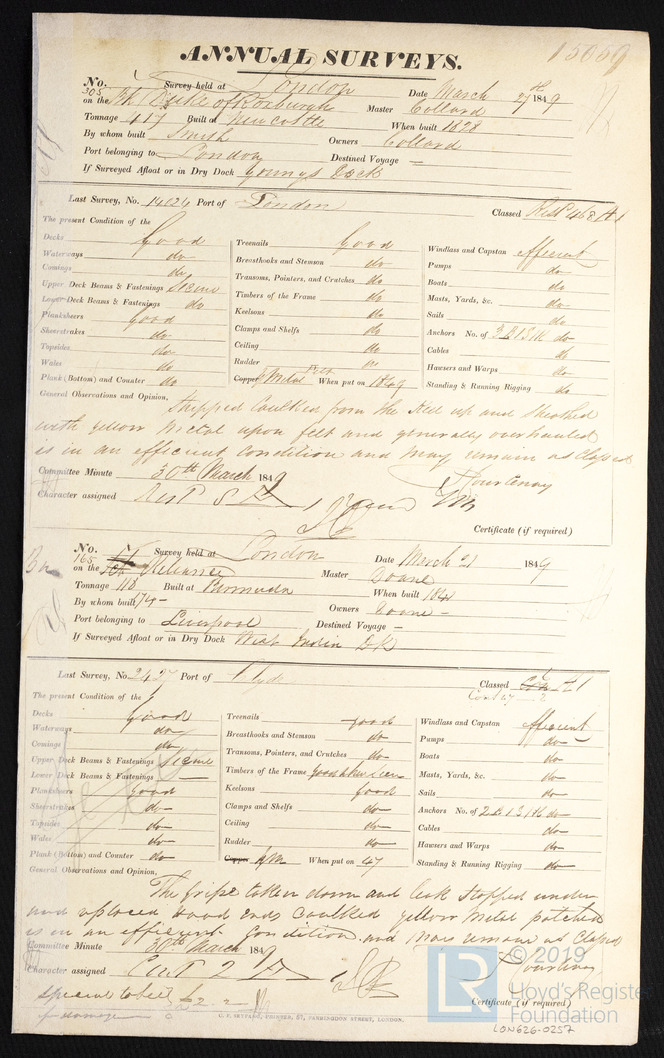 15059
ANNUAL SURVEYS.
No. 305 Survey held at London Date March 27th 1849
on the Bk Duke of Roxburgh Master Collard
Tonnage 417 Built at Newcastle When built 1828
By whom built Smith Owners Collard
Port belonging to London Destined Voyage —
If Surveyed Afloat or in Dry Dock Youngs Dock
Last Survey, No. 14024 Port of London Classed
The present Condition of the
Decks Good
Waterways do
Comings do
Upper Deck Beams & Fastenings Secure
Lower Deck Beams & Fastenings do
Planksheers Good
Sheerstrakes do
Topsides do
Wales do
Plank (Bottom) and Counter do
Treenails Good
Breasthooks and Stemson do
Transoms, Pointers, and Crutches do
Timbers of the Frame do
Keelsons do
Clamps and Shelfs do
Ceiling do
Rudder do
Copper Y Metal Felt When put on 1849
Windlass and Capstan efficient
Pumps do
Boats do
Masts, Yards, &c. do
Sails do
Anchors No. of 3 B 1 S 1 K do
Cables do
Hawsers and Warps do
Standing & Running Rigging do
General Observations and Opinion,
Stripped Caulked from the Keel up and sheathed
with yellow metal upon felt and generally overhauled
is in an efficient condition and may remain as Classed
Committee Minute 30th March 1849 Courtenay
Character assigned
Certificate (if required)
No. 165 Survey held at London Date March 21 1849
on the Sch Reliance Master Doane
Tonnage 118 Built at Bermuda When built 184
By whom built Owners Doane
Port belonging to Liverpool Destined Voyage —
If Surveyed Afloat or in Dry Dock West India Dk
Last Survey, No. 242 Port of Clyde Classed
The present Condition of the
Decks Good
Waterways do
Comings do
Upper Deck Beams & Fastenings Secure
Lower Deck Beams & Fastenings —
Planksheers good
Sheerstrakes do
Topsides do
Wales do
Plank (Bottom) and Counter do
Treenails good
Breasthooks and Stemson do
Transoms, Pointers, and Crutches do
Timbers of the Frame good where seen
Keelsons good
Clamps and Shelfs do
Ceiling do
Rudder do
Copper YM When put on 47
Windlass and Capstan efficient
Pumps do
Boats do
Masts, Yards, &c. do
Sails do
Anchors No. of 2 B 1 S 1 K do
Cables do
Hawsers and Warps do
Standing & Running Rigging do
General Observations and Opinion,
The gripe taken down and leak stopped under
and replaced hood ends caulked yellow metal patched
is in an efficient condition and may remain as Classed
Committee Minute 30th March 1849 Courtenay
Character assigned
Certificate (if required)
special to be
damage
C. F. SEYFANG, PRINTER, 57, FARRINGDON STREET, LONDON.
LR © 2019
Lloyd's Register
Foundation
LON626-0257